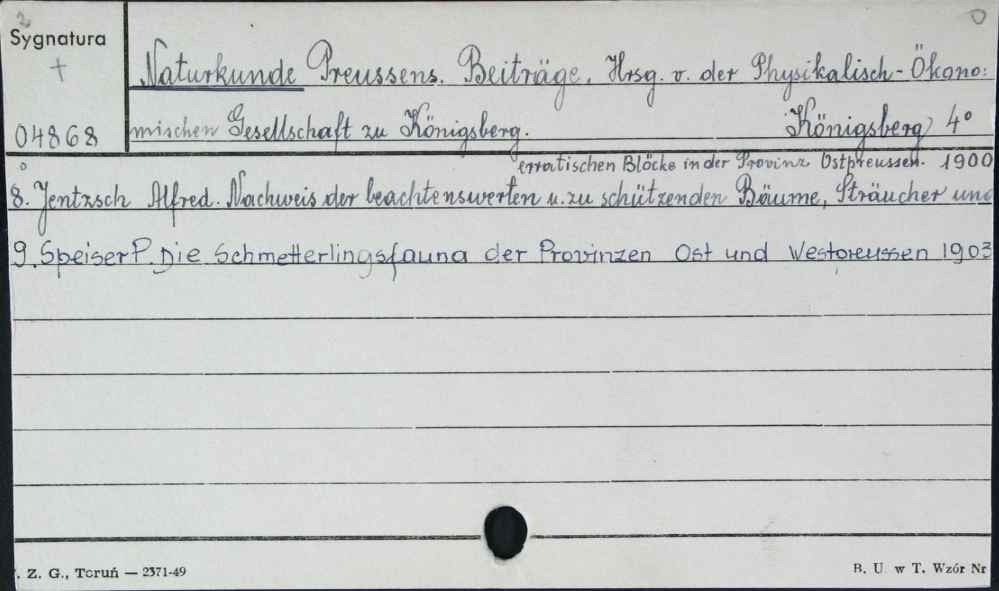 2
Sygnatura
+
Naturkunde Preussens. Beiträge. Hrsg. v. der Physikalisch-Ökono:
04868 mischen Gesellschaft zu Königsberg. Königsberg 4°
erratischen Blöcke in der Provinz Ostpreussen. 1900
8. Jentzsch Alfred. Nachweis der beachtenswerten u. zu schützenden Bäume, Sträucher und
9. Speiser P. Die Schmetterlingsfauna der Provinzen Ost und Westpreussen 1903
. Z. G., Toruń — 2371-49
B. U. w T. Wzór Nr